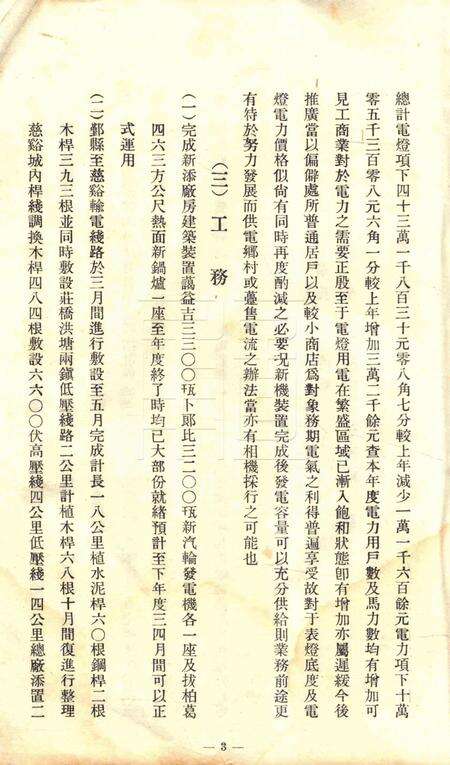 總計電燈項下四十三萬一千八百三十元零八角七分較上年減少一萬一千六百餘元電力項下十萬
零五千三百零八元六角一分較上年增加三萬二千餘元查本年度電力用戶數及馬力數均有增加可
見工商業對於電力之需要正殷至于電燈用電在繁盛區域已漸入飽和狀態卽有增加亦屬遲緩今後
推廣當以偏僻處所普通居戶以及較小商店爲對象務期電氣之利得普遍享受故對于表燈底度及電
燈電力價格似尙有同時再度酌減之必要況新機裝置完成後發電容量可以充分供給則業務前途更
有待於努力發展而供電鄉村或躉售電流之辦法當亦有相機採行之可能也
(三) 工務
(一) 完成新添廠房建築裝置藹益吉三三〇〇瓩卜郞比三二〇〇瓩新汽輪發電機各一座及拔柏葛
四六三方公尺熱面新鍋爐一座至年度終了時均已大部份就緒預計至下年度三四月間可以正
式運用
(二) 鄞縣至慈谿輸電綫路於三月間進行敷設至五月完成計長一八公里植水泥桿六〇根鋼桿二根
木桿三九三根並同時敷設莊橋洪塘兩鎭低壓綫路二公里計植木桿六八根十月間復進行整理
慈谿城內桿綫調換木桿四八四根敷設六六〇〇伏高壓綫四公里低壓綫一四公里總廠添置二
— 3 —